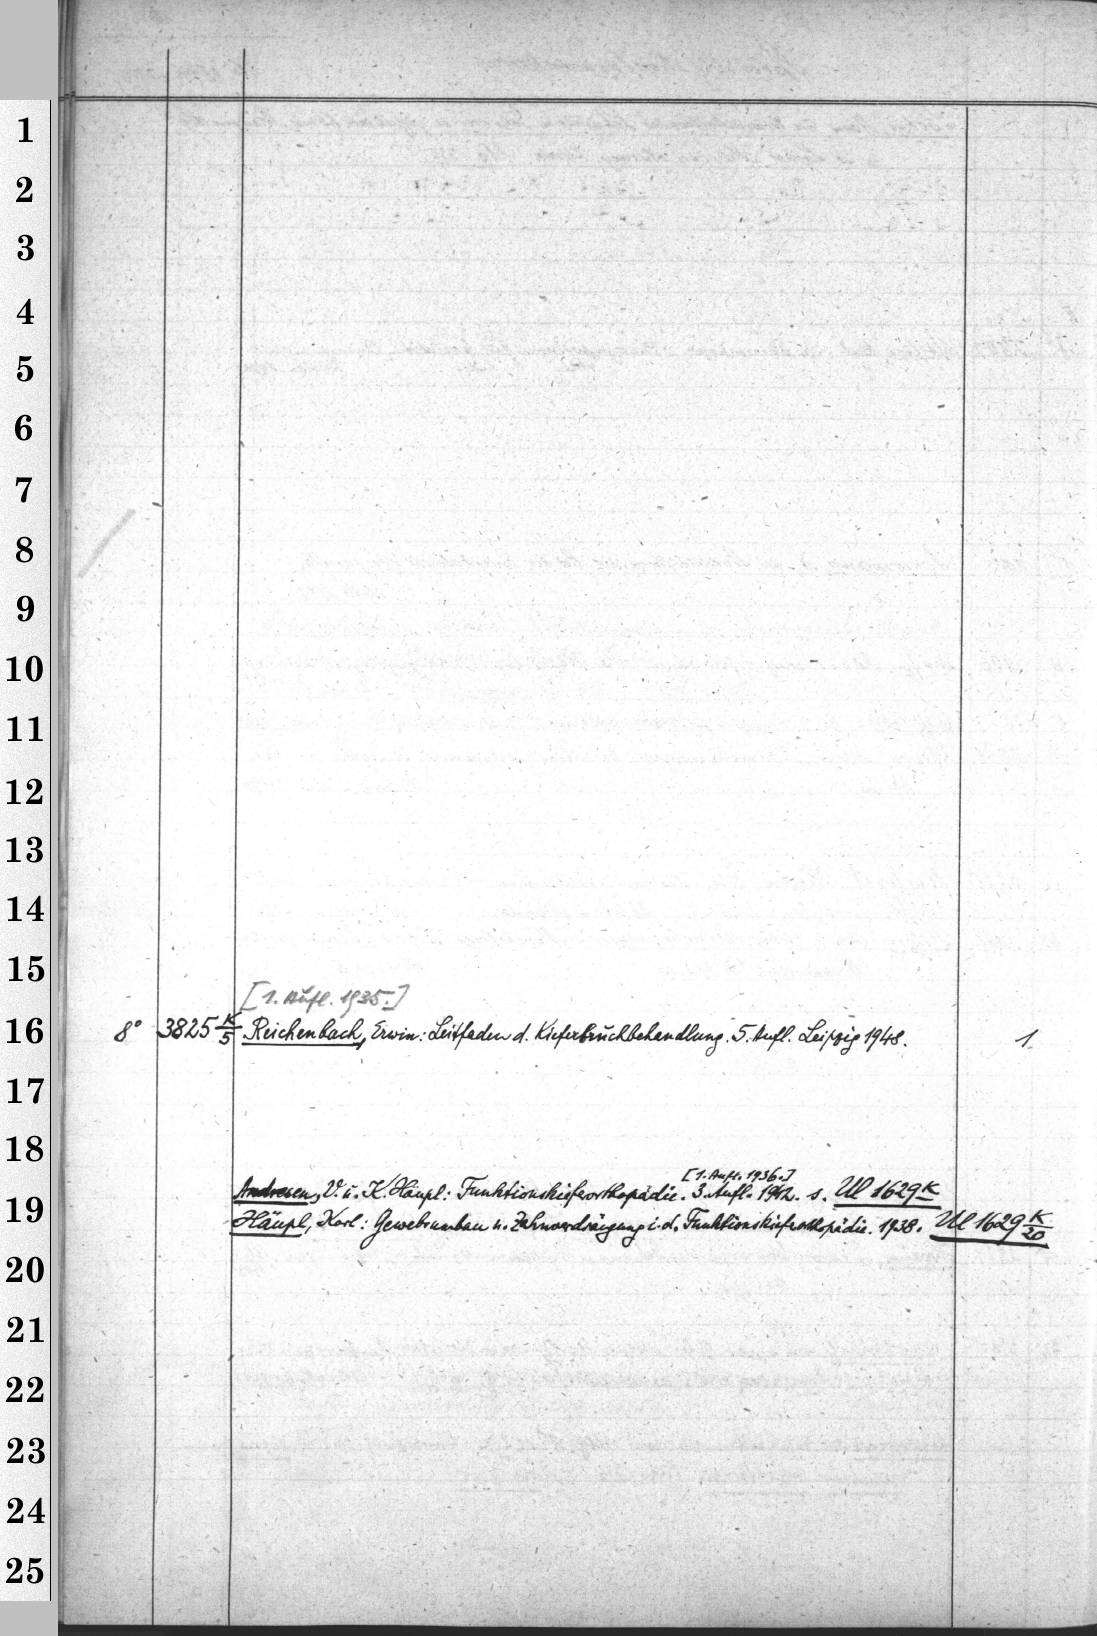 1
2
3
4
5
6
7
8
9
10
11
12
13
14
15
[1. Aufl. 1935.]
16 8° 3825 K/5 Reichenbach, Erwin: Leitfaden d. Kieferbruchbehandlung. 5. Aufl. Leipzig 1948. 1
17
18
[1. Aufl. 1936.]
Andresen, V. u. K. Häupl: Funktionskieferorthopädie. 3. Aufl. 1942. s. Ul 1629 K
19 Häupl, Karl: Gewebsumbau u. Zahnverdrängung i. d. Funktionskieferorthopädie. 1938. Ul 1629 K/20
20
21
22
23
24
25